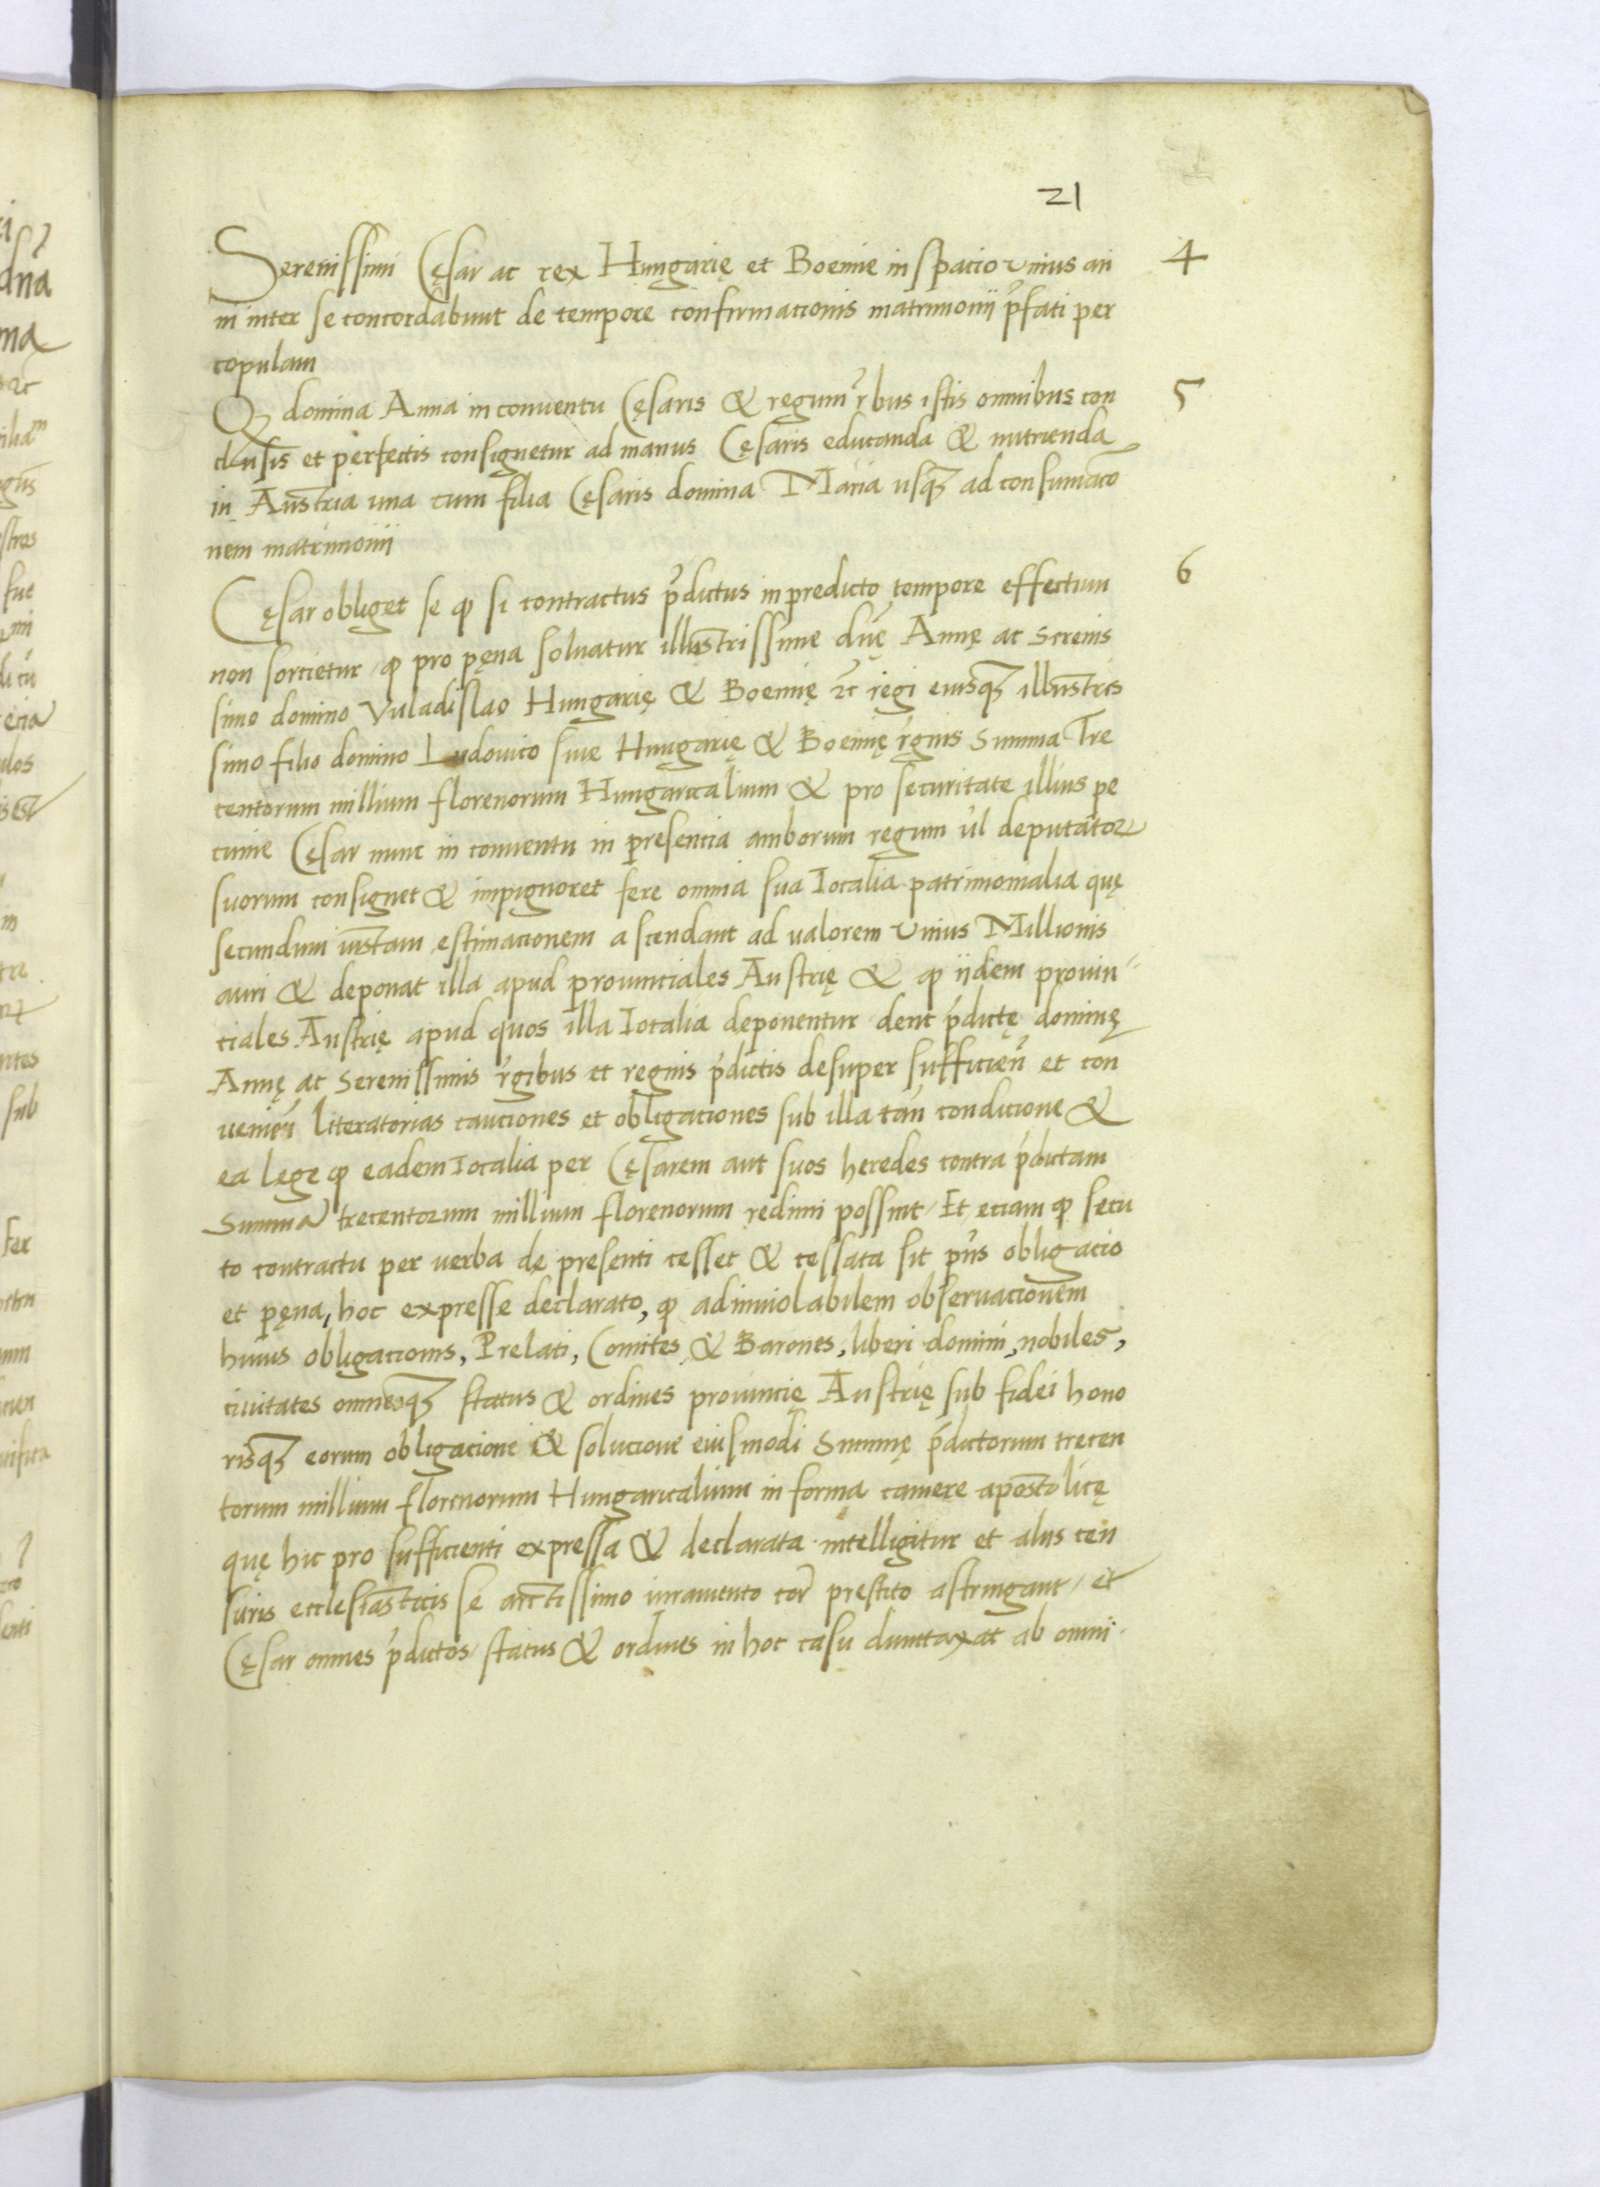 21
Serenissimi Cęsar ac rex Hungarię et Boemie in spacio unius an 4
ni inter se concordabunt de tempore confirmacionis matrimonij p̃fati per
copulam
Qꝫ domina Anna in conuentu Cęsaris & regum r̃bus istis omnibus con 5
clusis et perfectis consignetur ad manus Cęsaris educanda & nutrienda
in Austria una cum filia Cęsaris domina Maria usqꝫ ad consumac̃o
nem matrimonij
Cęsar obliget se ꝙ si contractus p̃dictus in predicto tempore effectum 6
non sorcietur / ꝙ pro pęna soluatur illustrissime dn̄ę Annę ac Serenis
simo domino Vuladislao Hungarię & Boemię ꝛc̃ regi eiusqꝫ illustris
simo filio domino Ludouico siue Hungarię & Boemię r̃gnis Summa Tre
centorum millium florenorum Hungaricalium & pro securitate illius pe
cunie Cęsar nunc in conuentu in presencia amborum regum ul̃ deputatoꝝ
suorum consignet & impignoret fere omnia sua Iocalia patrimonialia quę
secundum iustam estimacionem ascendant ad ualorem unius Millionis
auri & deponat illa apud prouinciales Austrię & ꝙ ijdem prouin-
ciales Austrię apud quos illa Iocalia deponentur dent p̃dictę dominę
Annę ac Serenissimis r̃gibus et regnis p̃dictis desuper sufficien̄ et con
uenien̄ literatorias cauciones et obligaciones sub illa tan̄ condicione &
ea lege ꝙ eadem Iocalia per Cęsarem aut suos heredes contra p̃dictam
Summa trecentorum millium florenorum redimi possint / Et eciam ꝙ secu
to contractu per uerba de presenti cesset & cessata sit pn̄s obligacio
et pęna, hoc expresse declarato, ꝙ ad inuiolabilem obseruacionem
huius obligacionis, Prelati, Comites & Barones, liberi domini, nobiles,
ciuitates omnesqꝫ status & ordines prouincię Austrię sub fidei hono
risqꝫ eorum obligacione & solucione eiusmodi Summę p̃dictorum trecen
torum millium florenorum Hungaricalium in forma camere apostolicę
quę hic pro sufficienti expressa & declarata intelligitur et alijs cen
suris ecclesiasticis se arctissimo iuramento cor̃ prestito astringant / et
Cęsar omnes p̃dictos status & ordines in hoc casu duntaxat ab omni